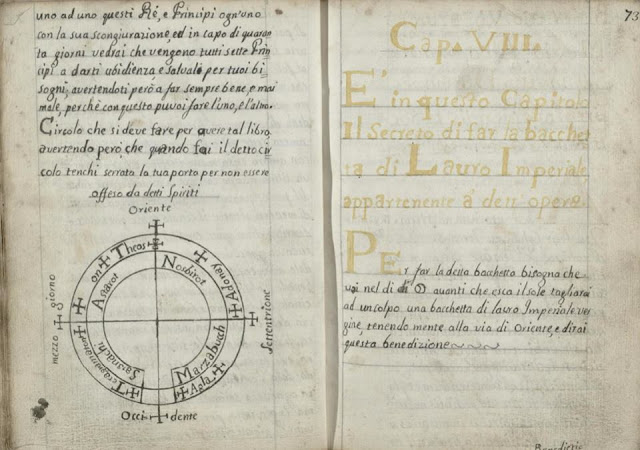 uno ad uno questi Rè, e Principi ogn'uno
con la sua scongiurazione, ed in capo di quaran
ta giorni vedrai che vengono tutti sette Prin
cipi a darti ubidienza e salvalo per tuoi bi
sogni, avertendoti però a far sempre bene, e mai
male, perchè con questo puvoi fare l'uno, e l'altro.
Circolo che si deve fare per avere tal libro
avertendo però, che quando fai il detto cir
colo tenchi serrata la tua porta per non essere
offeso da detti Spiriti
Oriente
on Theos
Adonay
Astarot
Nosbirot
mezzo giorno
Settentrione
Sarinachi
Marzabuch
Agla
Occi dente
73
Cap. VIII.
E' in questo Capitolo
Il Secreto di far la bacchet
ta di Lauro Imperiale
appartenente a dett' opera
Per far la detta bacchetta bisogna che
vai nel dì di ☉ avanti che esca il sole tagliarai
ad un colpo una bacchetta di lauro Imperiale ver
gine, tenendo mente alla via di Oriente, e dirai
questa benedizione